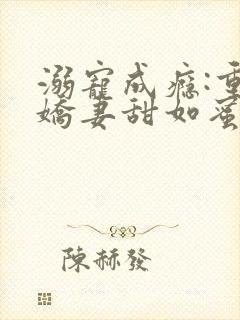 溺寵成癮:重
嬌妻甜如蜜
陳赫發